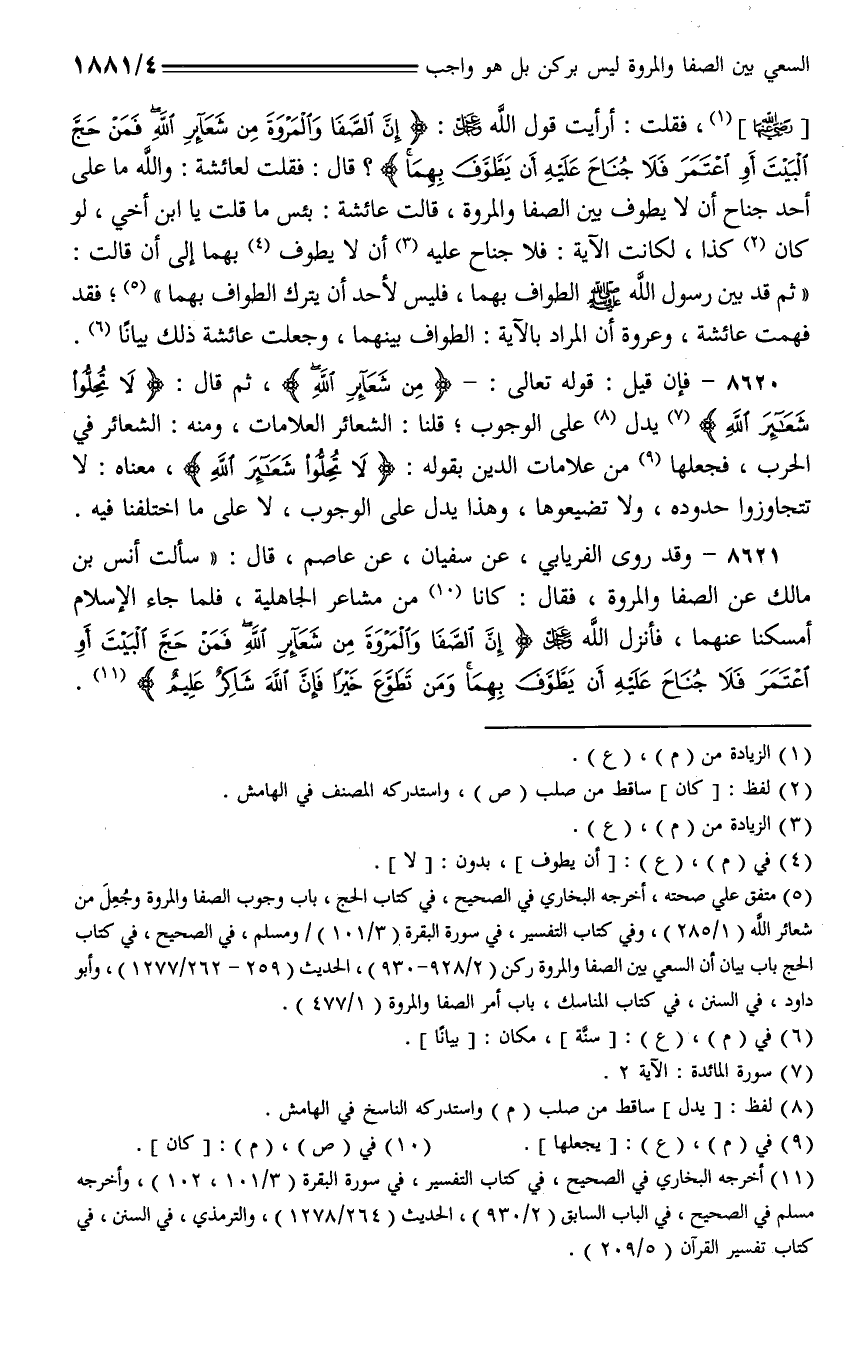 السعي بين الصفا والمروة ليس بركن بل هو واجب ١٨٨١/٤
[ ﷺ ] (١) ، فقلت : أرأيت قول اللَّه ﷻ : ﴿ إِنَّ ٱلصَّفَا وَٱلْمَرْوَةَ مِن شَعَآئِرِ ٱللَّهِ ۖ فَمَنْ حَجَّ
ٱلْبَيْتَ أَوِ ٱعْتَمَرَ فَلَا جُنَاحَ عَلَيْهِ أَن يَطَّوَّفَ بِهِمَا ۚ ﴾ ؟ قال : فقلت لعائشة : واللَّه ما على
أحد جناح أن لا يطوف بين الصفا والمروة ، قالت عائشة : بئس ما قلت يا ابن أخي ، لو
كان (٢) كذا ، لكانت الآية : فلا جناح عليه (٣) أن لا يطوف (٤) بهما إلى أن قالت :
« ثم قد بين رسول اللَّه ﷺ الطواف بهما ، فليس لأحد أن يترك الطواف بهما » (٥) ؛ فقد
فهمت عائشة ، وعروة أن المراد بالآية : الطواف بينهما ، وجعلت عائشة ذلك بيانًا (٦) .
٨٦٢٠ – فإن قيل : قوله تعالى : – ﴿ مِن شَعَآئِرِ ٱللَّهِ ۖ ﴾ ، ثم قال : ﴿ لَا تُحِلُّوا۟
شَعَـٰٓئِرَ ٱللَّهِ ﴾ (٧) يدل (٨) على الوجوب ؛ قلنا : الشعائر العلامات ، ومنه : الشعائر في
الحرب ، فجعلها (٩) من علامات الدين بقوله : ﴿ لَا تُحِلُّوا۟ شَعَـٰٓئِرَ ٱللَّهِ ﴾ ، معناه : لا
تتجاوزوا حدوده ، ولا تضيعوها ، وهذا يدل على الوجوب ، لا على ما اختلفنا فيه .
٨٦٢١ – وقد روى الفريابي ، عن سفيان ، عن عاصم ، قال : « سألت أنس بن
مالك عن الصفا والمروة ، فقال : كانا (١٠) من مشاعر الجاهلية ، فلما جاء الإسلام
أمسكنا عنهما ، فأنزل اللَّه ﷻ ﴿ إِنَّ ٱلصَّفَا وَٱلْمَرْوَةَ مِن شَعَآئِرِ ٱللَّهِ ۖ فَمَنْ حَجَّ ٱلْبَيْتَ أَوِ
ٱعْتَمَرَ فَلَا جُنَاحَ عَلَيْهِ أَن يَطَّوَّفَ بِهِمَا ۚ وَمَن تَطَوَّعَ خَيْرًا فَإِنَّ ٱللَّهَ شَاكِرٌ عَلِيمٌ ﴾ (١١) .
(١) الزيادة من ( م ) ، ( ع ) .
(٢) لفظ : [ كان ] ساقط من صلب ( ص ) ، واستدركه المصنف في الهامش .
(٣) الزيادة من ( م ) ، ( ع ) .
(٤) في ( م ) ، ( ع ) : [ أن يطوف ] ، بدون : [ لا ] .
(٥) متفق علي صحته ، أخرجه البخاري في الصحيح ، في كتاب الحج ، باب وجوب الصفا والمروة وجُعِلَ من
شعائر اللَّه ( ٢٨٥/١ ) ، وفي كتاب التفسير ، في سورة البقرة ( ١٠١/٣ ) / ومسلم ، في الصحيح ، في كتاب
الحج باب بيان أن السعي بين الصفا والمروة ركن ( ٩٢٨/٢-٩٣٠ ) ، الحديث ( ٢٥٩ – ١٢٧٧/٢٦٢ ) ، وأبو
داود ، في السنن ، في كتاب المناسك ، باب أمر الصفا والمروة ( ٤٧٧/١ ) .
(٦) في ( م ) ، ( ع ) : [ سنَّة ] ، مكان : [ بيانًا ] .
(٧) سورة المائدة : الآية ٢ .
(٨) لفظ : [ يدل ] ساقط من صلب ( م ) واستدركه الناسخ في الهامش .
(٩) في ( م ) ، ( ع ) : [ يجعلها ] . (١٠) في ( ص ) ، ( م ) : [ كان ] .
(١١) أخرجه البخاري في الصحيح ، في كتاب التفسير ، في سورة البقرة ( ١٠١/٣ ، ١٠٢ ) ، وأخرجه
مسلم في الصحيح ، في الباب السابق ( ٩٣٠/٢ ) ، الحديث ( ١٢٧٨/٢٦٤ ) ، والترمذي ، في السنن ، في
كتاب تفسير القرآن ( ٢٠٩/٥ ) .